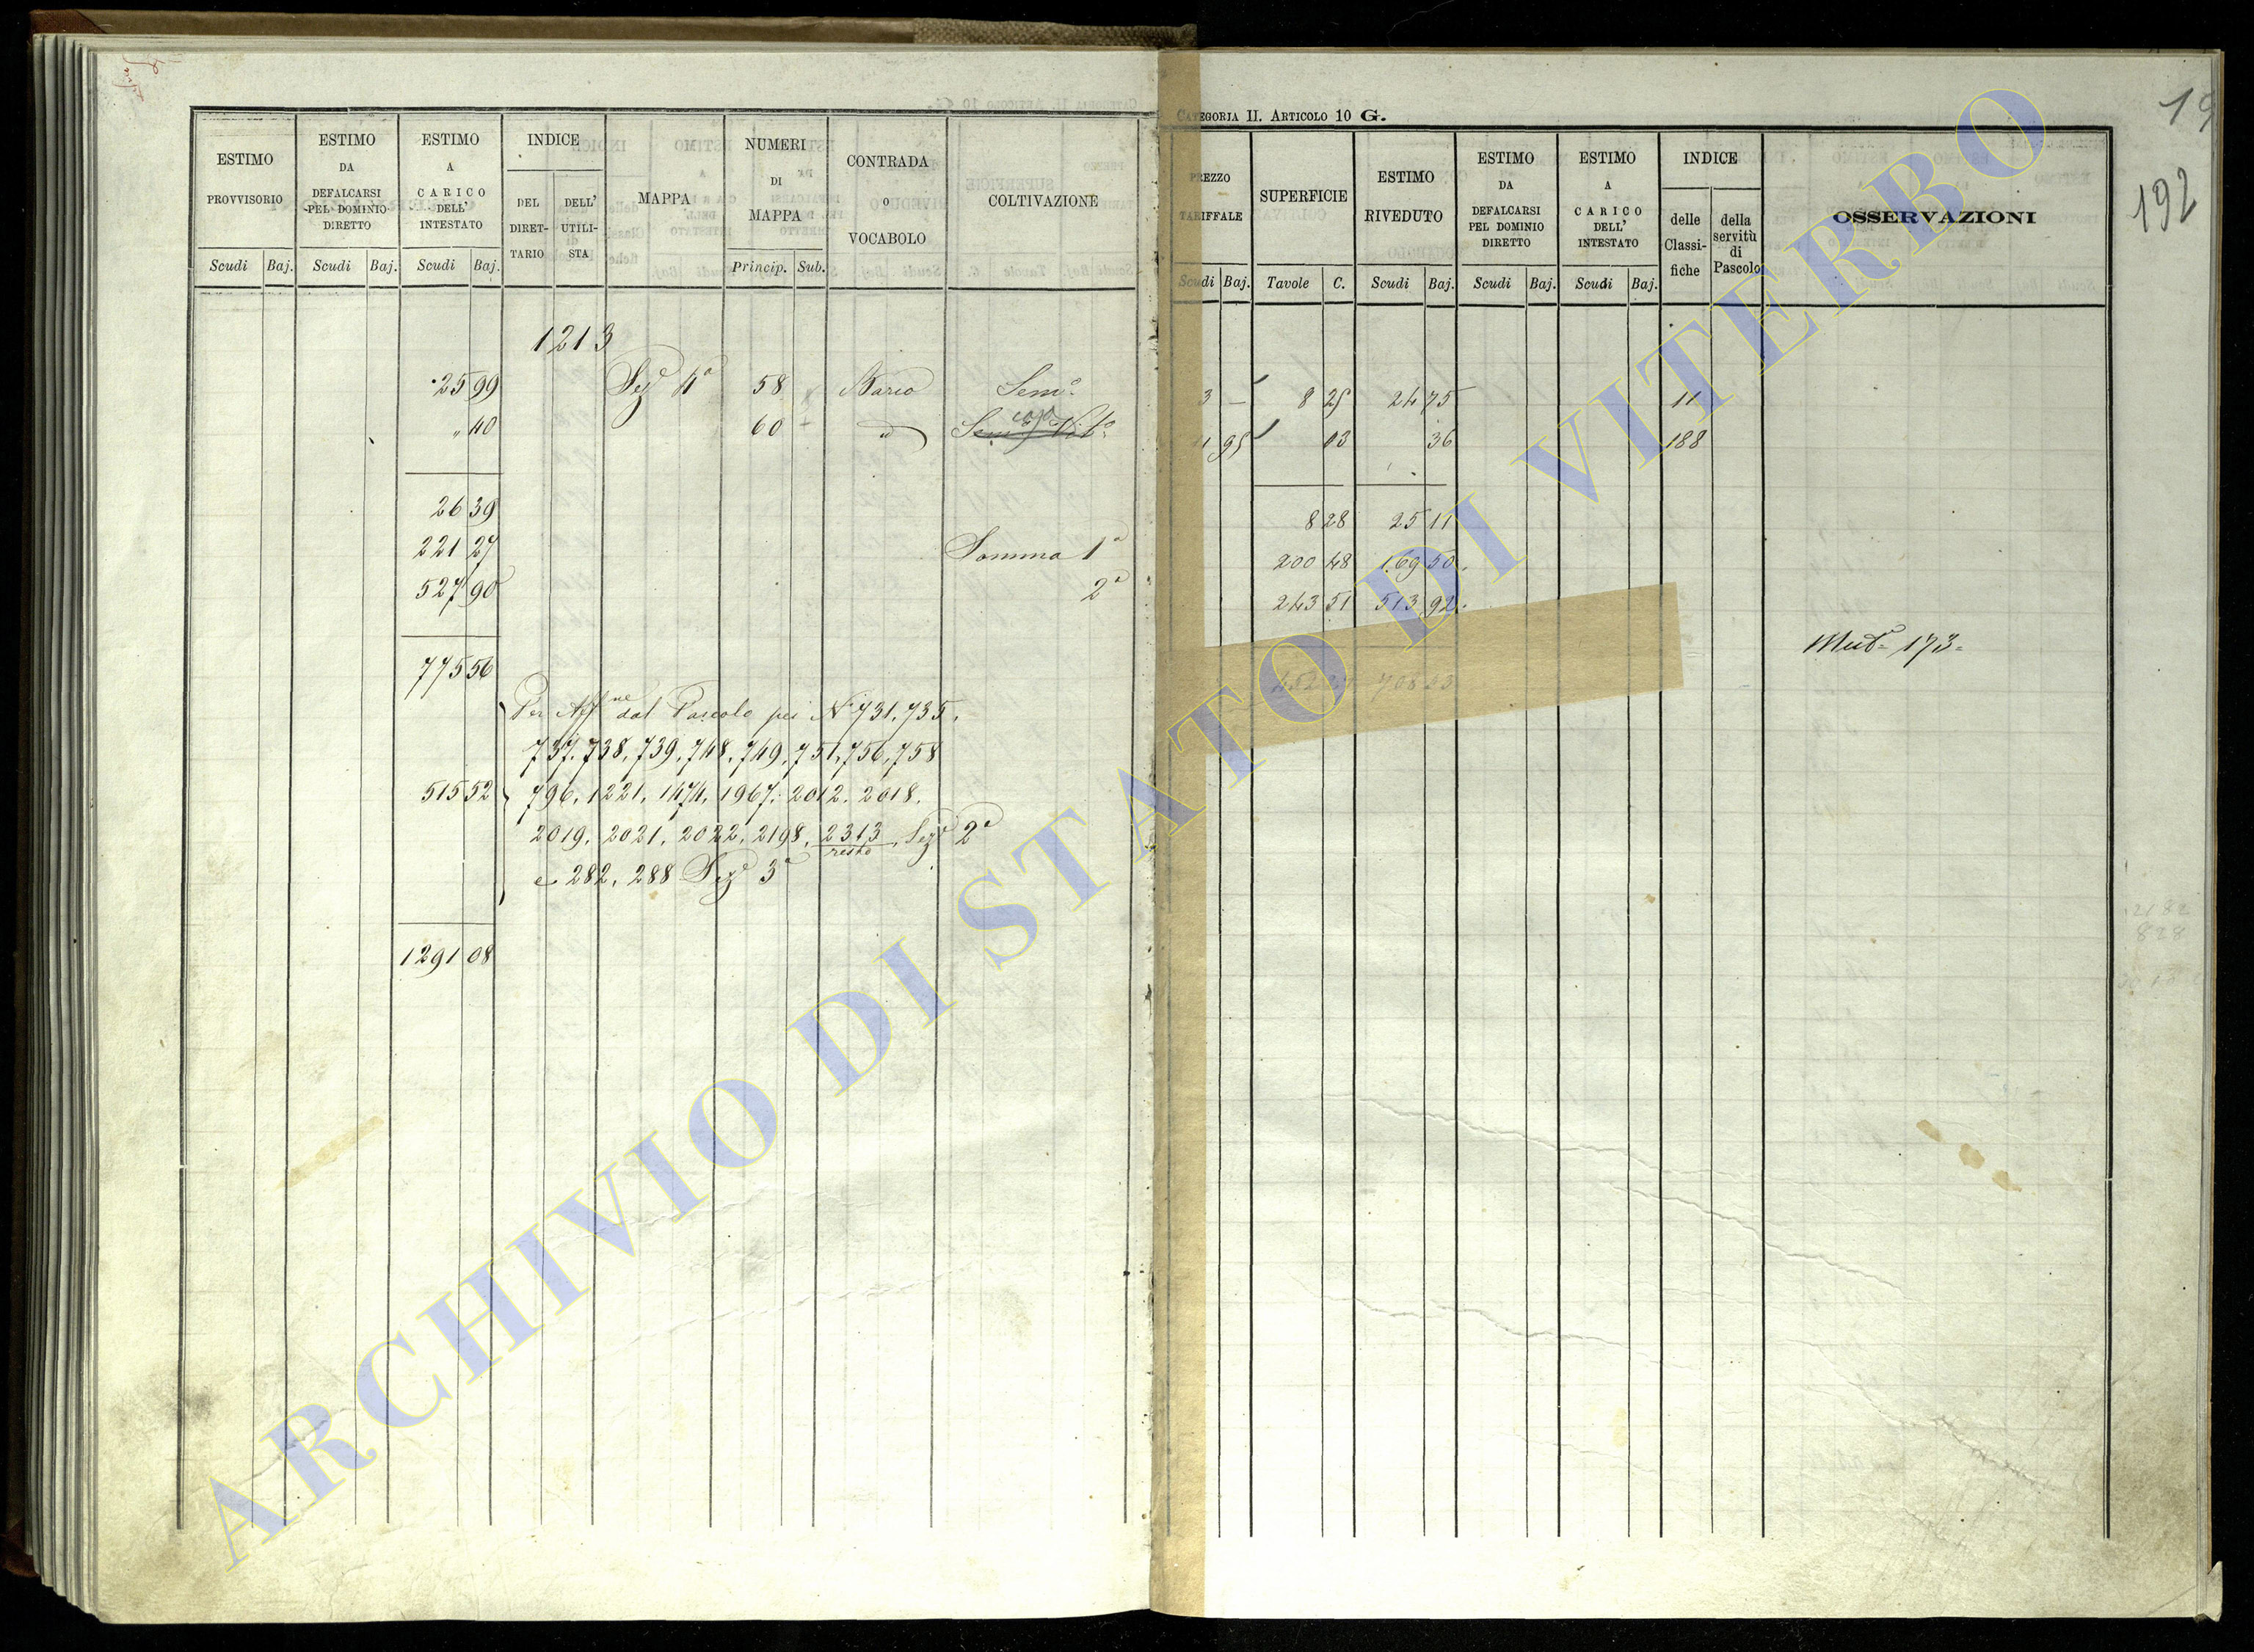 CATEGORIA II. ARTICOLO 10 G.
192
ESTIMO PROVVISORIO
Scudi Baj.
ESTIMO DA DEFALCARSI PEL DOMINIO DIRETTO
Scudi Baj.
ESTIMO A CARICO DELL' INTESTATO
Scudi Baj.
INDICE
DEL DIRETTARIO
DELL' UTILISTA
MAPPA
NUMERI DI MAPPA
Princip. Sub.
CONTRADA O VOCABOLO
COLTIVAZIONE
PREZZO TARIFFALE
Scudi Baj.
SUPERFICIE
Tavole C.
ESTIMO RIVEDUTO
Scudi Baj.
ESTIMO DA DEFALCARSI PEL DOMINIO DIRETTO
Scudi Baj.
ESTIMO A CARICO DELL' INTESTATO
Scudi Baj.
INDICE
delle Classifiche
della servitù di Pascolo
OSSERVAZIONI
1213
25 99 Sezᵉ 4ª 58 Nario Semº 3 — 8 25 24 75 11
" 40 60 " casa Vitº 95 03 36 188
26 39 8 28 25 11
221 27 Somma 1ª 200 48 169 50
527 90 2ª 243 51 513 92
775 56 708 53
Mutᵉ 173
Per Affⁿᵉ dal Pascolo pei Nⁱ 731, 735,
737, 738, 739, 748, 749, 751, 756, 758
515 52 796, 1221, 1474, 1967, 2012, 2018,
2019, 2021, 2022, 2198, 2313 resto, Sezᵉ 2ª
e 282, 288 Sezᵉ 3ª
1291 08
2182
828
ARCHIVIO DI STATO DI VITERBO